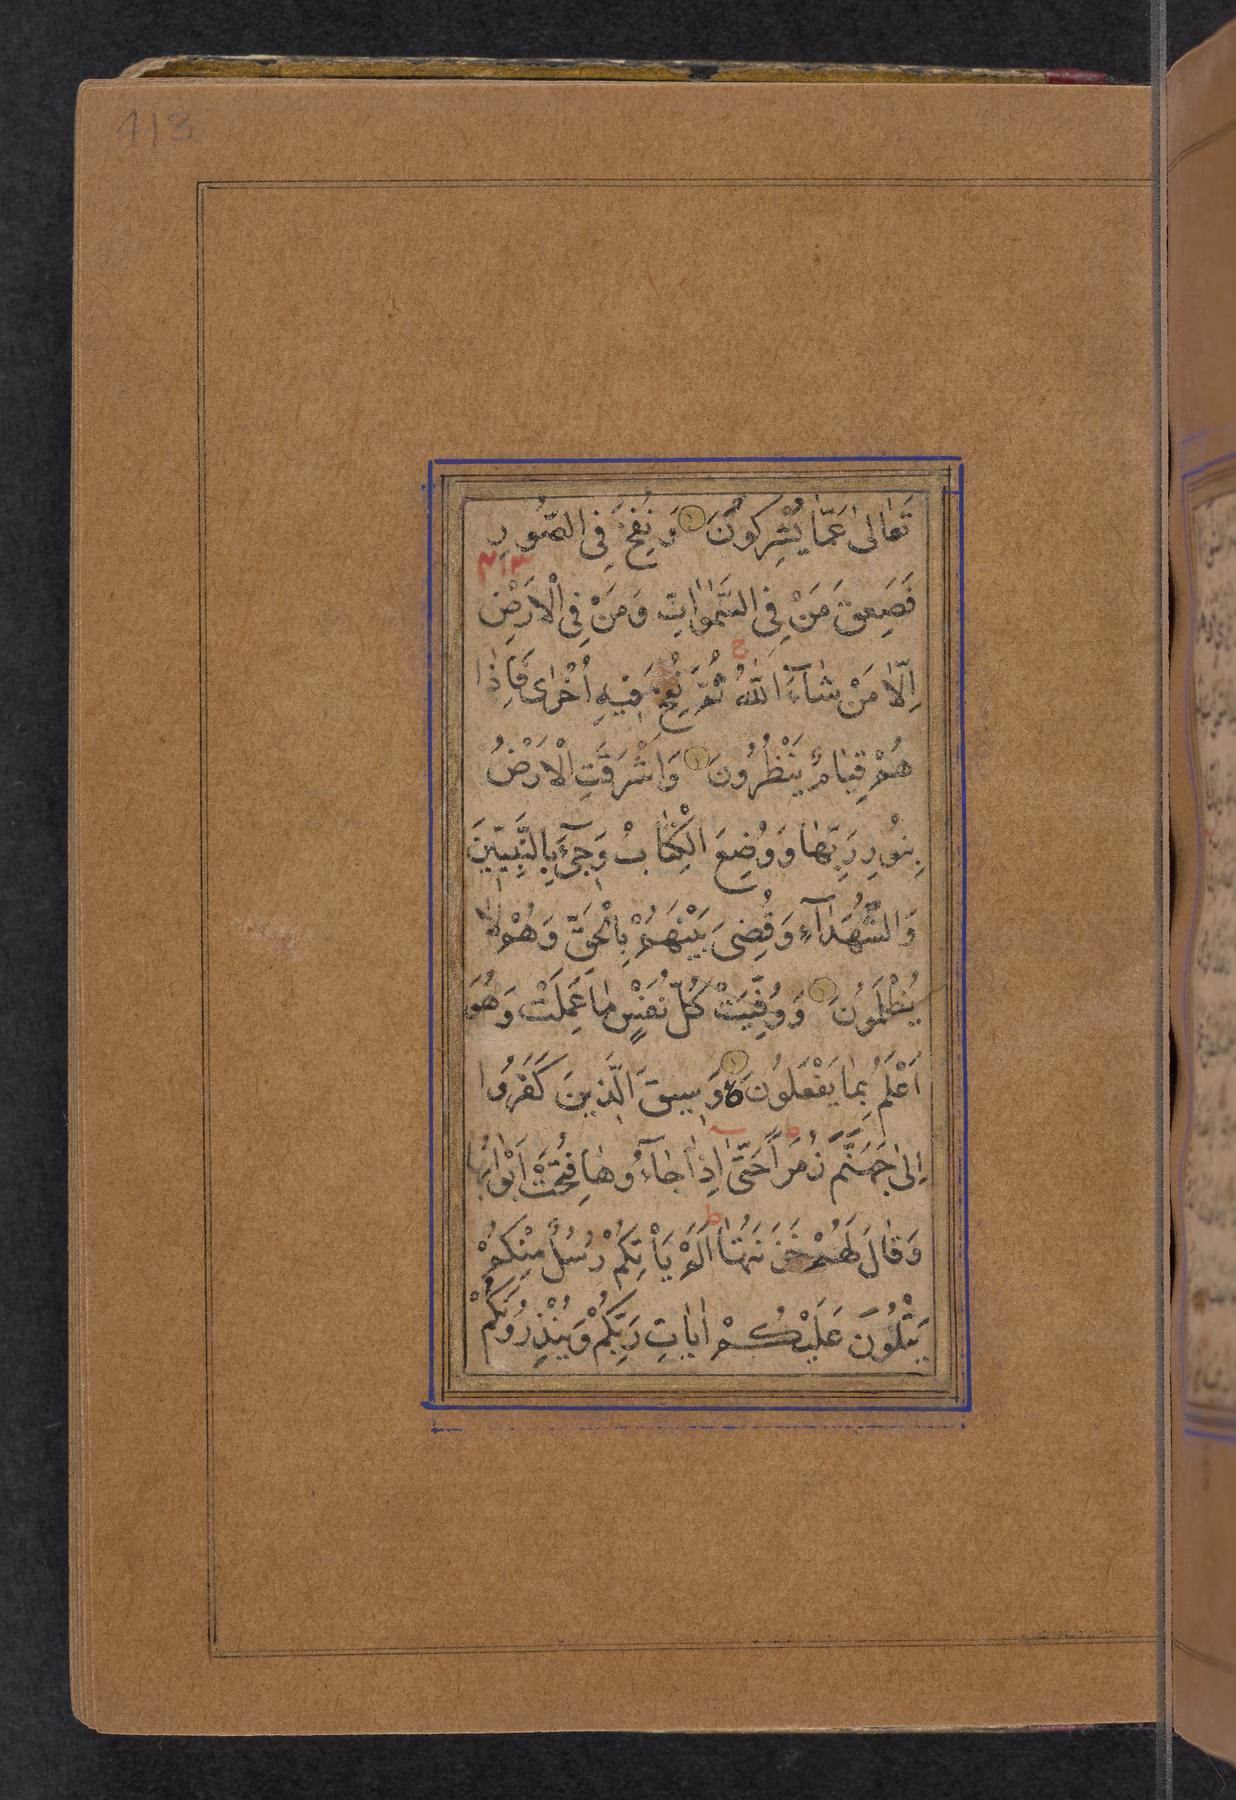 413
تَعٰالىٰ عَمّٰا يُشْرِكُونَ وَ نُفِخَ فِى الصُّورِ
فَصَعِقَ مَنْ فِى السَّمٰوٰاتِ وَ مَنْ فِى الْاَرْضِ
اِلّٰا مَنْ شٰآءَ اللّٰهُ ثُمَّ نُفِخَ فيهِ اُخْرىٰ فَاِذٰا
هُمْ قِيٰامٌ يَنْظُرُونَ وَاَشْرَقَتِ الْاَرْضُ
بِنُورِ رَبِّهٰا وَ وُضِعَ الْكِتٰابُ وَ جىٓءَ بِالنَّبِيّينَ
وَالشُّهَدٰآءِ وَ قُضِىَ بَيْنَهُمْ بِالْحَقِّ وَ هُمْ لٰا
يُظْلَمُونَ وَ وُفِّيَتْ كُلُّ نَفْسٍ مٰا عَمِلَتْ وَ هُوَ
اَعْلَمُ بِمٰا يَفْعَلُونَ وَ سيقَ الَّذينَ كَفَرُوا
اِلىٰ جَهَنَّمَ زُمَراً حَتّٰى اِذٰا جٰآءُوهٰا فُتِحَتْ اَبْوٰابُهٰا
وَ قٰالَ لَهُمْ خَزَنَتُهٰا اَلَمْ يَاْتِكُمْ رُسُلٌ مِنْكُمْ
يَتْلُونَ عَلَيْكُمْ اٰيٰاتِ رَبِّكُمْ وَ يُنْذِرُونَكُمْ